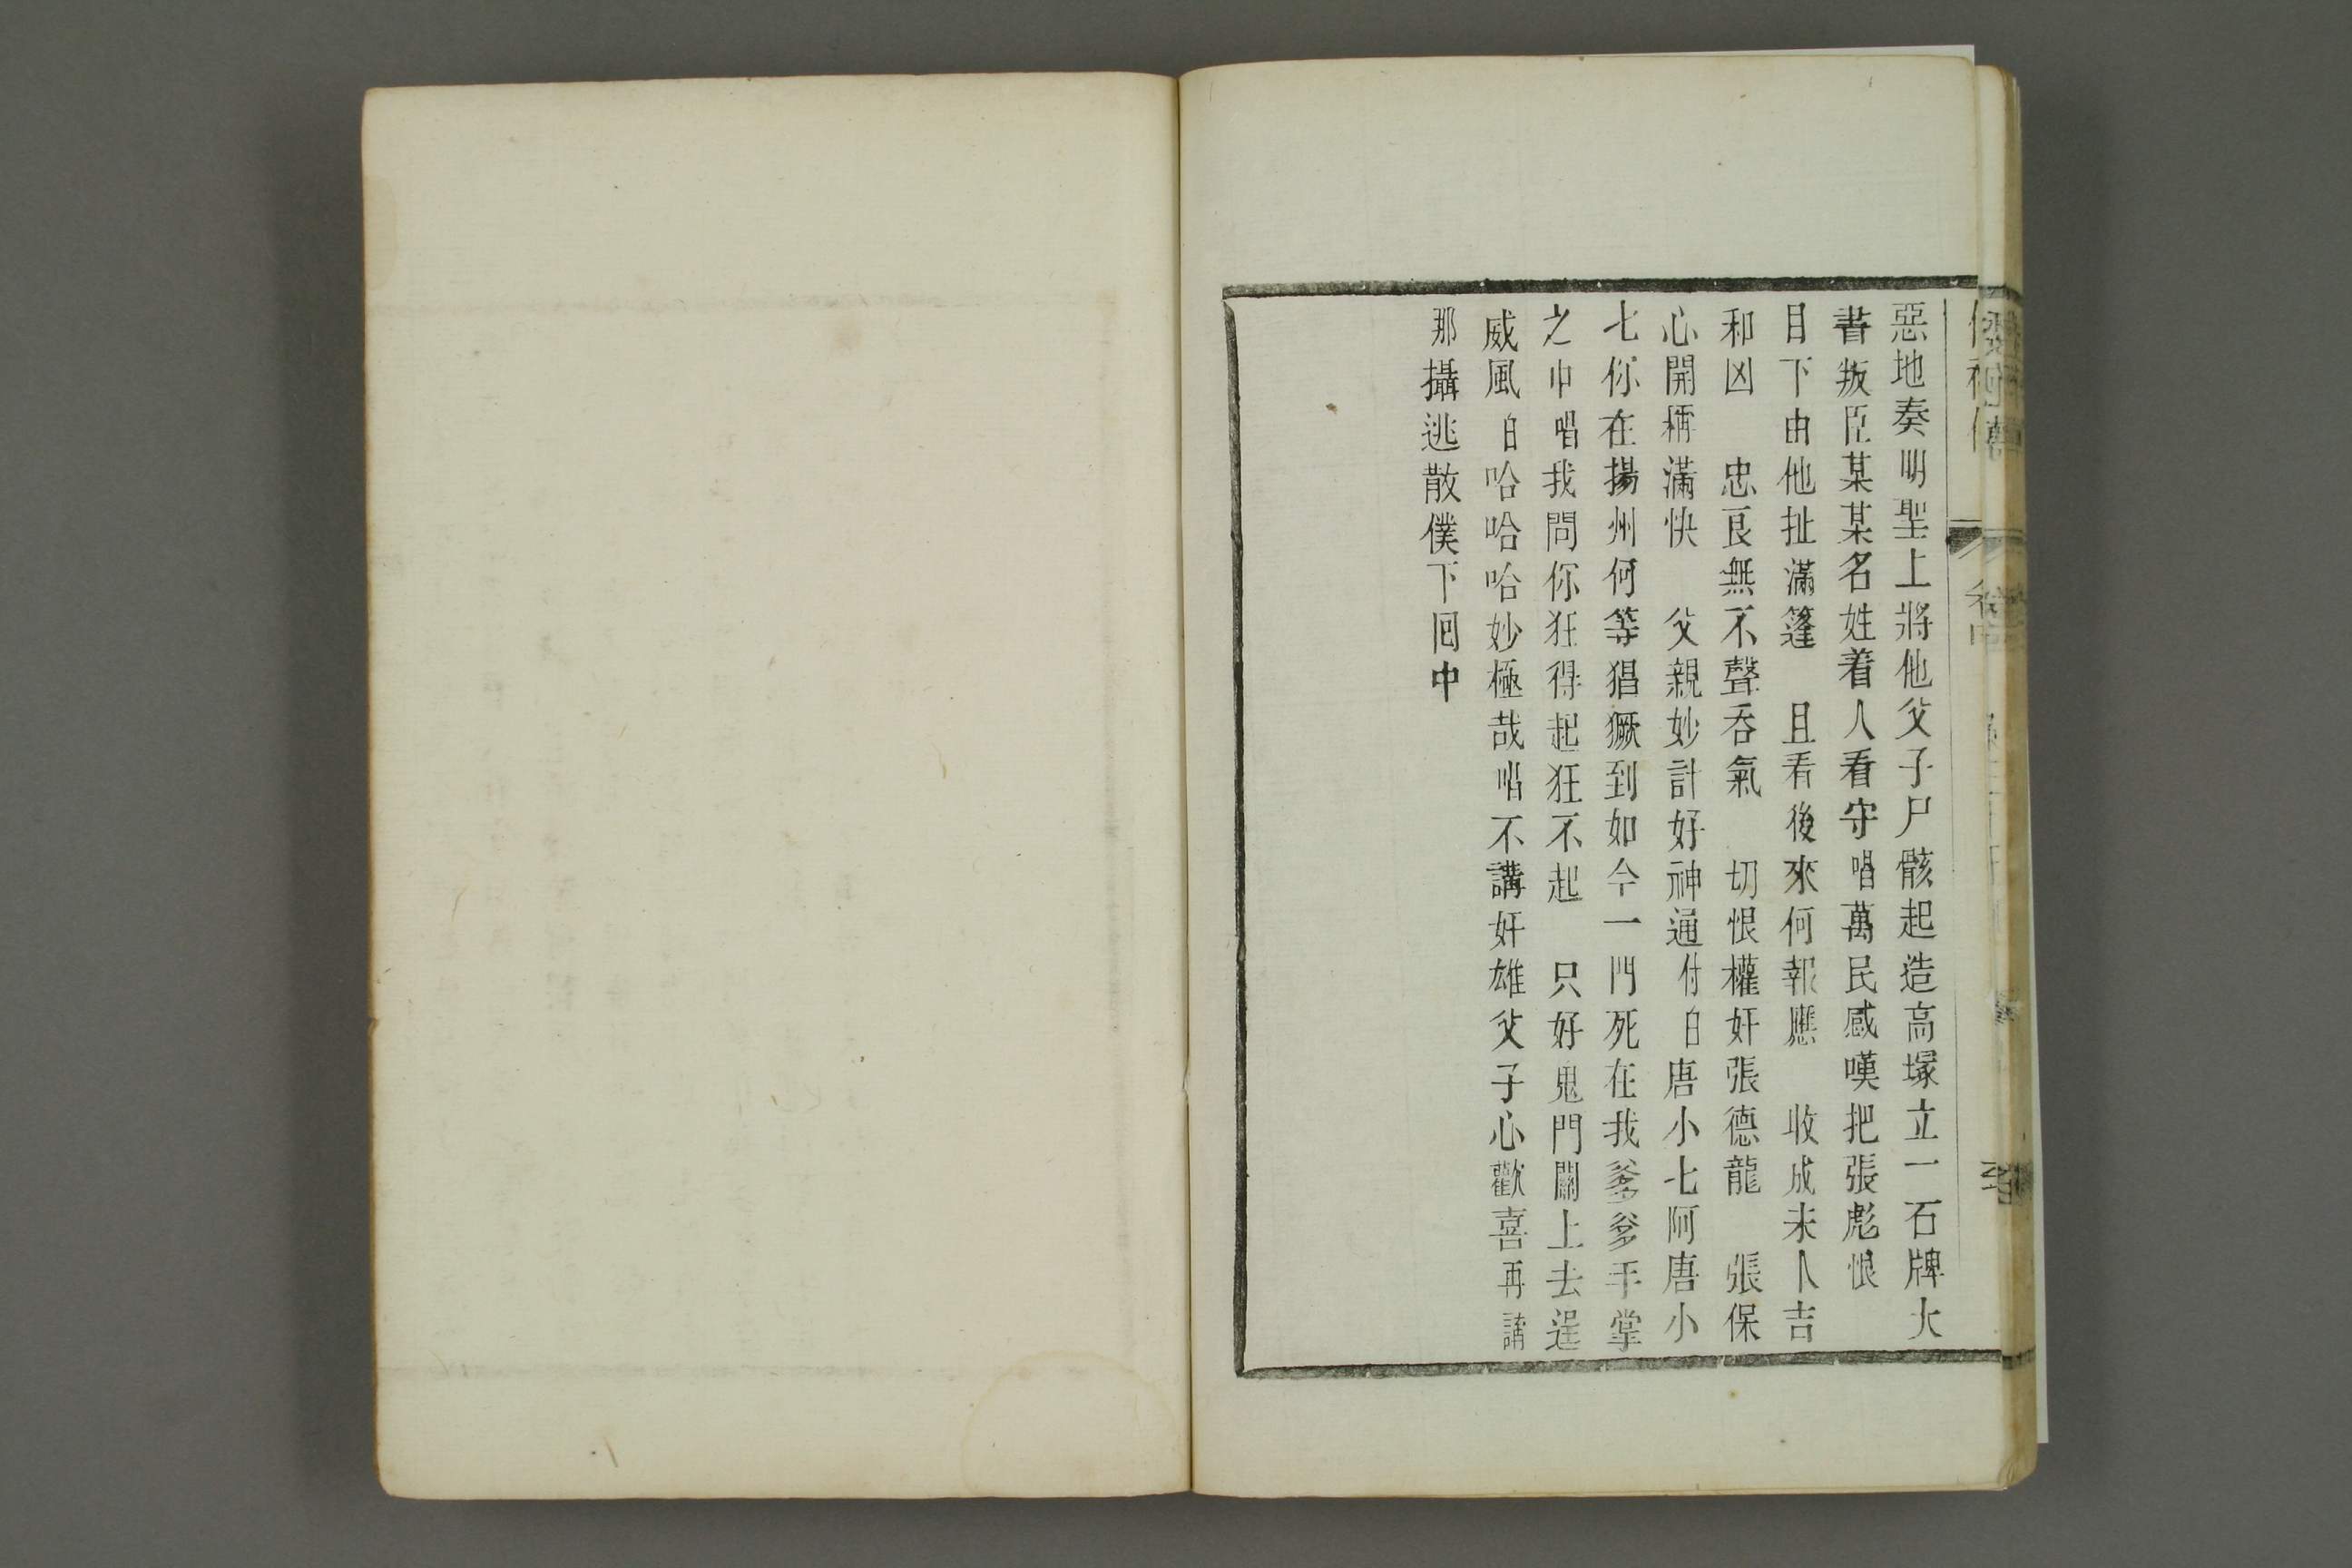 惡地奏明聖上將他父子尸骸起造高塚立一石牌大
書叛臣某某名姓着人看守唱萬民感嘆把張彪恨
目下由他扯滿篷　且看後來何報應　收成未卜吉
和凶　忠良無不聲吞氣　切恨權奸張德龍　張保
心開稱滿快　父親妙計好神通付白唐小七阿唐小
七你在揚州何等猖獗到如今一門死在我爹爹手掌
之中唱我問你狂得起狂不起　只好鬼門關上去逞
威風白哈哈哈妙極哉唱不講奸雄父子心歡喜再講
那攝逃散僕下回中